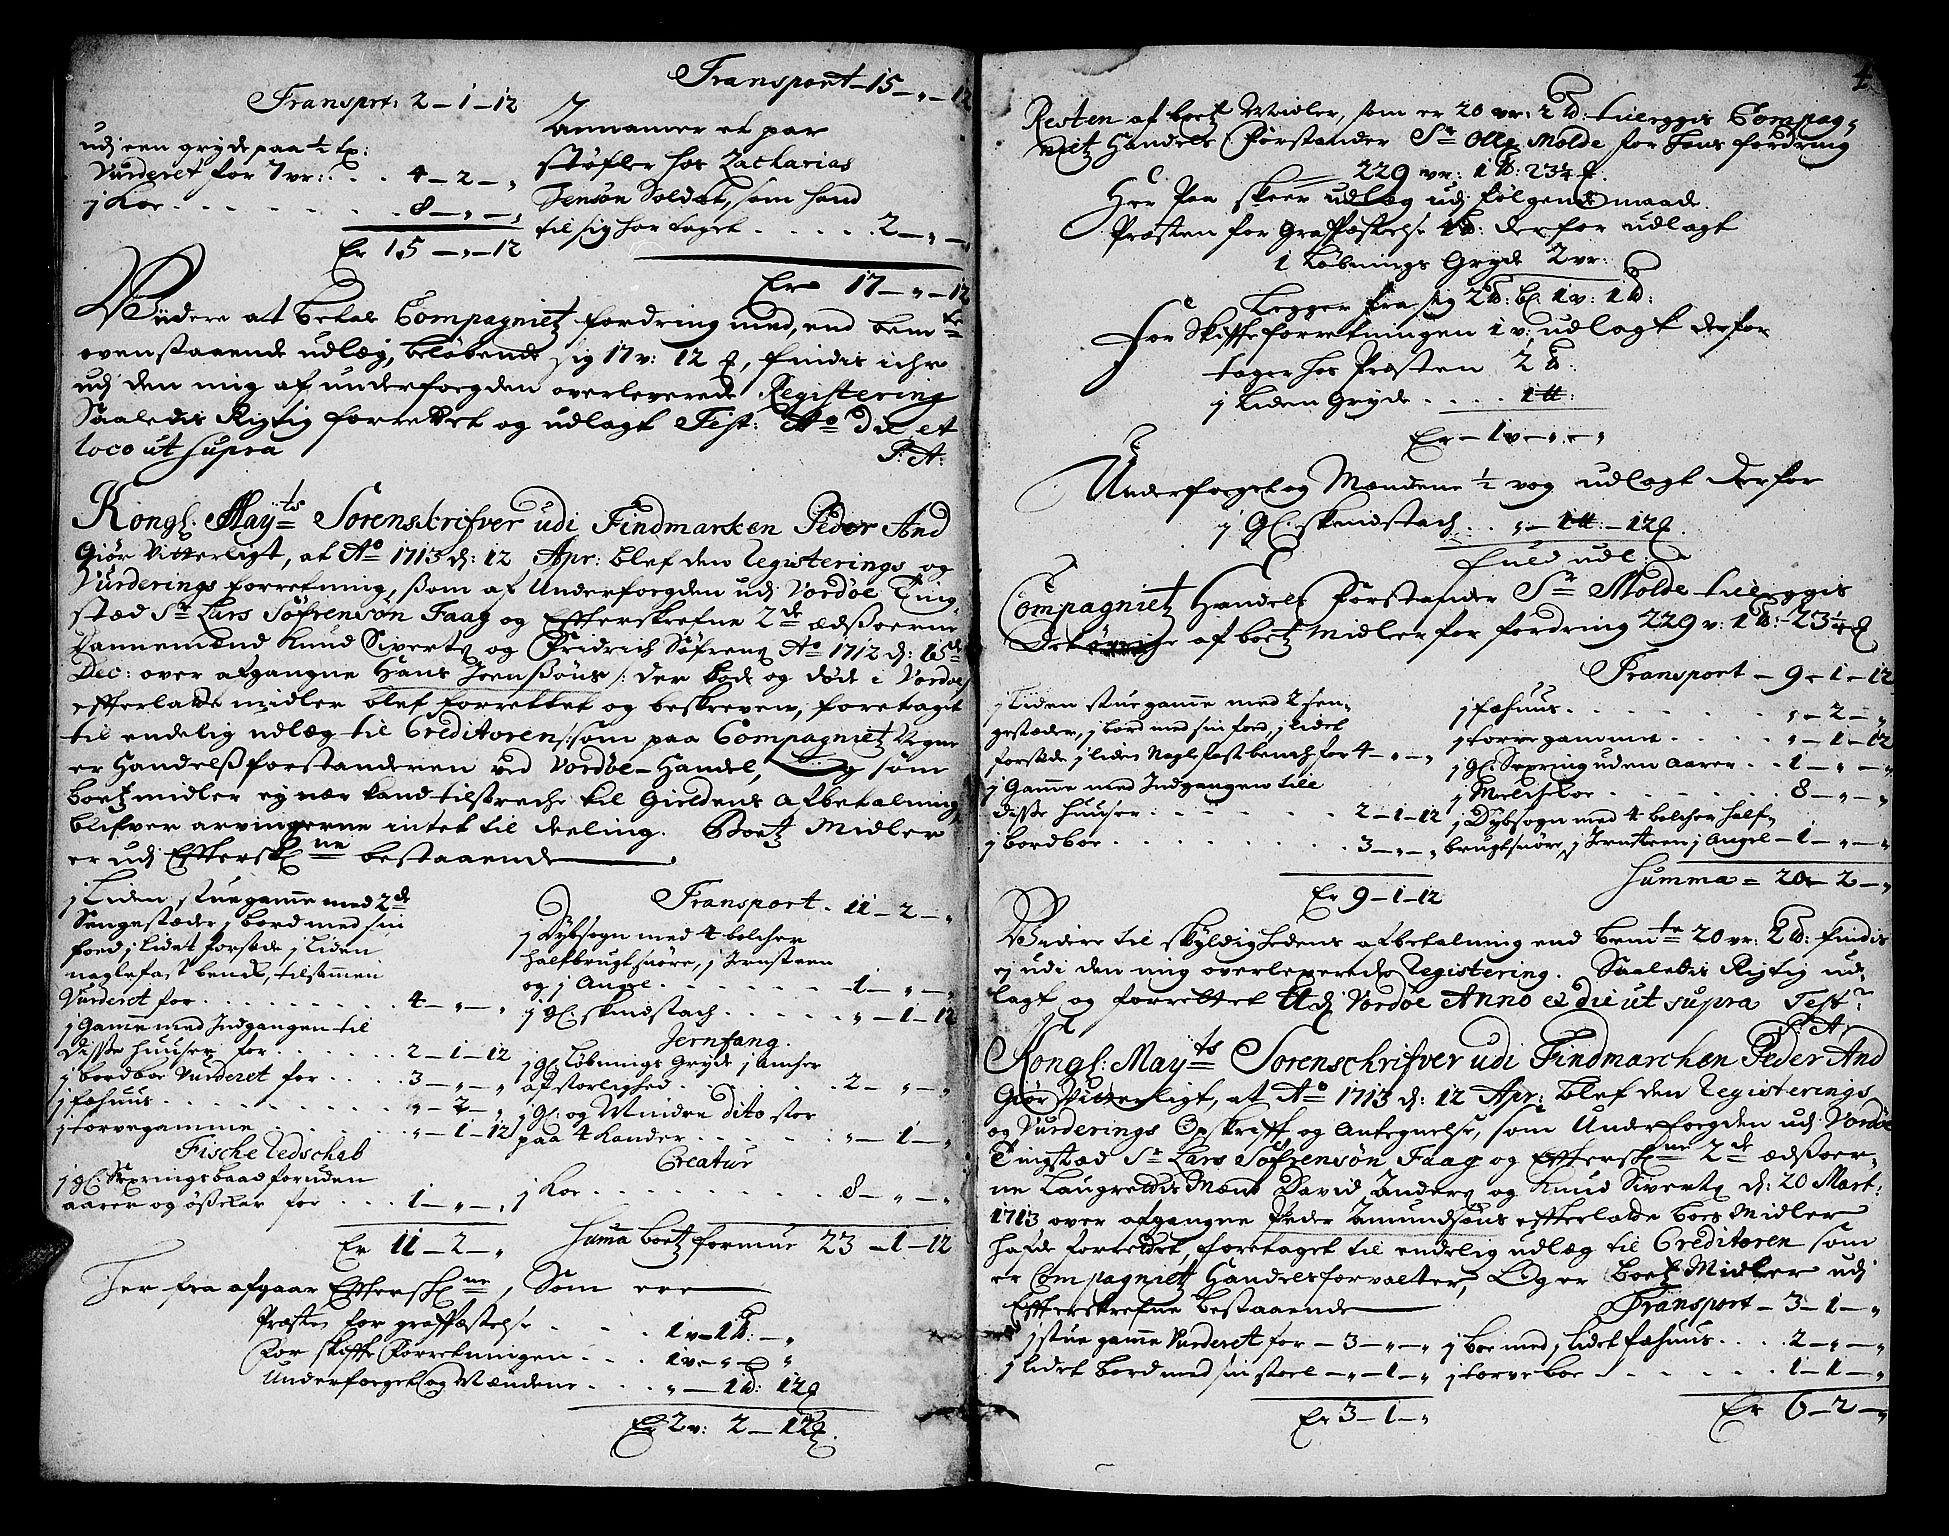 Transport 2 – 1 – 12
udj een gryde paa ½ tp:
Vurderet for 7 vr: . . . 4 – 2 – „
j Koe . . . . . . 8 – „ – „
Er 15 – „ – 12
Transport – 15 – „ – 12
Annamer et par
støfler hos Zacharias
Jensøn Soldat, som hand
til sig har taget . . . . . 2 – „ –
Er 17 – „ – 12
Viidere at betale Compagnietz fordring med, end bemte
ovenstaaende udlæg, beløbende sig 17 v: 12 , findis iche
udj den mig af underfogden overleverede Registering
Saaledis Rigtig forrettet og udlagt Test: Ao Die et
loco ut supra
P: A:
Kongl. Mayts Sorenskrifver udi Findmarken Peder And
Giør Vitterligt, at Ao 1713 d: 12 Apr: blef den Registerings og
Vurderings forretning, som af Underfogden udj Vordøe Ting-
stæd Sr Lars Søfrensøn Faag og Effterskrefne 2de ædsoerne
Dannemænd Knud Siverts og Fridrich Søfrens Ao 1712 d: 15de
Dec: over afgangne Hans Joensøns /: der boede og døde i Vordøe/
efterladte midler blef forrettet og beskreven, foretaget
til endelig udlæg til Creditoren /: som paa Compagnietz Vegne
er Handelsforstanderen ved Vordøe Handel, og som
boetz midler ey nær kand tilstreche til Gieldens afbetaling,
blifver arvingerne intet til deeling. Boetz Midler
er udj Effterskne bestaaende
j Liden stuegamme med 2de
Sengestæder j bord med sin
foed j lidet forstøde j Liden
naglefast bench, tilsammen
Vurderet for . . . . . . . 4 – „ – „
j Gamme med Indgangen til
disse huuser for . . . . 2 – 1 – 12
j bordboe Vurderet for . . . 3 – „ – „
j fæhuus . . . . . . . . „ – 2 – „
j torvegamme . . . . . . „ – 1 – 12
Fische Redschab
j gl: Sexringsbaad foruden
aarer og øsekar for . . . 1 – „ – „
Er 11 – 2 – „
Transport . 11 – 2 – „
j Dybsogn med 4 bolcher
halfbrugt snøre, j Jernsteen
og j Angel . . . . . . . 1 – „ – „
j gl: skindstach . . . . . „ – 1 – 12
Jernfang.
j gl: Løbnings Gryde j ancher
af storlighed . . . . . . 2 – „ – „
j gl: og Mindre dito stor
paa 4 Kander . . . . . . „ – 1 – „
Creatur
j Koe . . . . . . . . . 8 – „ – „
Suma boetz formue 23 – 1 – 12
Her fra afgaar Efferskne, Som er
Præsten for graffæstelse . . . 1 v – 1 : – „
For skiffte Forretningen . . . 1 v: – „ – „
Underfoget og Mændene . . . „ – 1 : 12
Er 2 v: 2 – 12
4
Resten af boetz Midler, som er 20 vr: 2 : tilleggis Compag-
nietz Handels Forstander Sr Olle Molde for hans fordring
229 vr: 1 : 23¼ .
Her Paa skeer udlæg udj følgende maade.
Præsten for Graffæstelse 1 : derfor udlagt
1 Løbnings Gryde 2 vr:
Legger fra sig 2 : bl: 1 v: 1 :
For Skiffteforretningen 1 v: udlagt derfor
tager hos Præsten 2 :
j Liden Gryde . . . . 1 :
Er – 1 v – „ – „
Underfoget og Mændene ½ vog udlagt derfor
j gl: skindstach . . „ – 1 : – 12 .
fuld udl:
Compagnietz Handels Forstander Sr Molde tileggis
Det øvrige af boetz midler for fordring 229 v: 1 : – 23¼
j Liden stuegamme med 2 sen-
gestæder, j bord med sin foed, j Lidet
forstøde j liden Naglefast bench for 4 – „ – „
j Gamme med Indgangen till
disse huuser . . . . . . 2 – 1 – 12
j bordboe . . . . . . . . 3 – „ – „
Er 9 – 1 – 12
Transport – 9 – 1 – 12
j fæhuus . . . . . . . „ – 2 – „
j torvegamme . . . . . „ – 1 – 12
j gl: Sexring uden aarer . . 1 – „ – „
j Melche Koe . . . . . . 8 – „ – „
j Dybsogn med 4 bolcher half-
brugt snøre, j Jernsteen j Angel – 1 – „ – „
Summa = 20 – 2 – „
Videre til skyldighedens afbetalning end bemte 20 vr: 2 : findis
ej udi den mig overleverede Registering. Saaledis Rigtig ud-
lagt og forrettet Udj Vordøe Anno et die ut supra Test:
P: A:
Kongl: Mayts Sorenschrifver udi Findmarchen Peder And
Giør Vitterligt, at Ao 1713 d: 12 Apr: blef den Registerings
og Vurderings Opskrifft og Antegnelse, som Underfogden udj Vordøe
Tingstæd Sr Lars Søfrensøn Faag og Efferskne 2de ædsoer-
ne Laugrettis Mænd David Anders og Knud Siverts d: 20 Mart:
1713 over afgangne Peder Amundsøns efterladte boes Midler
hafde forrettet, foretaget til endelig udlæg til Creditoren som
er Compagnietz Handelsforvalter, Og er boetz Midler udj
Effterskrefne bestaaende
j stuegamme Vurderet for – 3 – „ – „
j lidet bord med sin stoel – „ – 1 – „
Er 3 – 1 – „
Transport – 3 – 1 – „
j boe med j lidet fæhuus . . . 2 – „ – „
j torve boe . . . . . . 1 – 1 – „
Er 6 – 2 – „